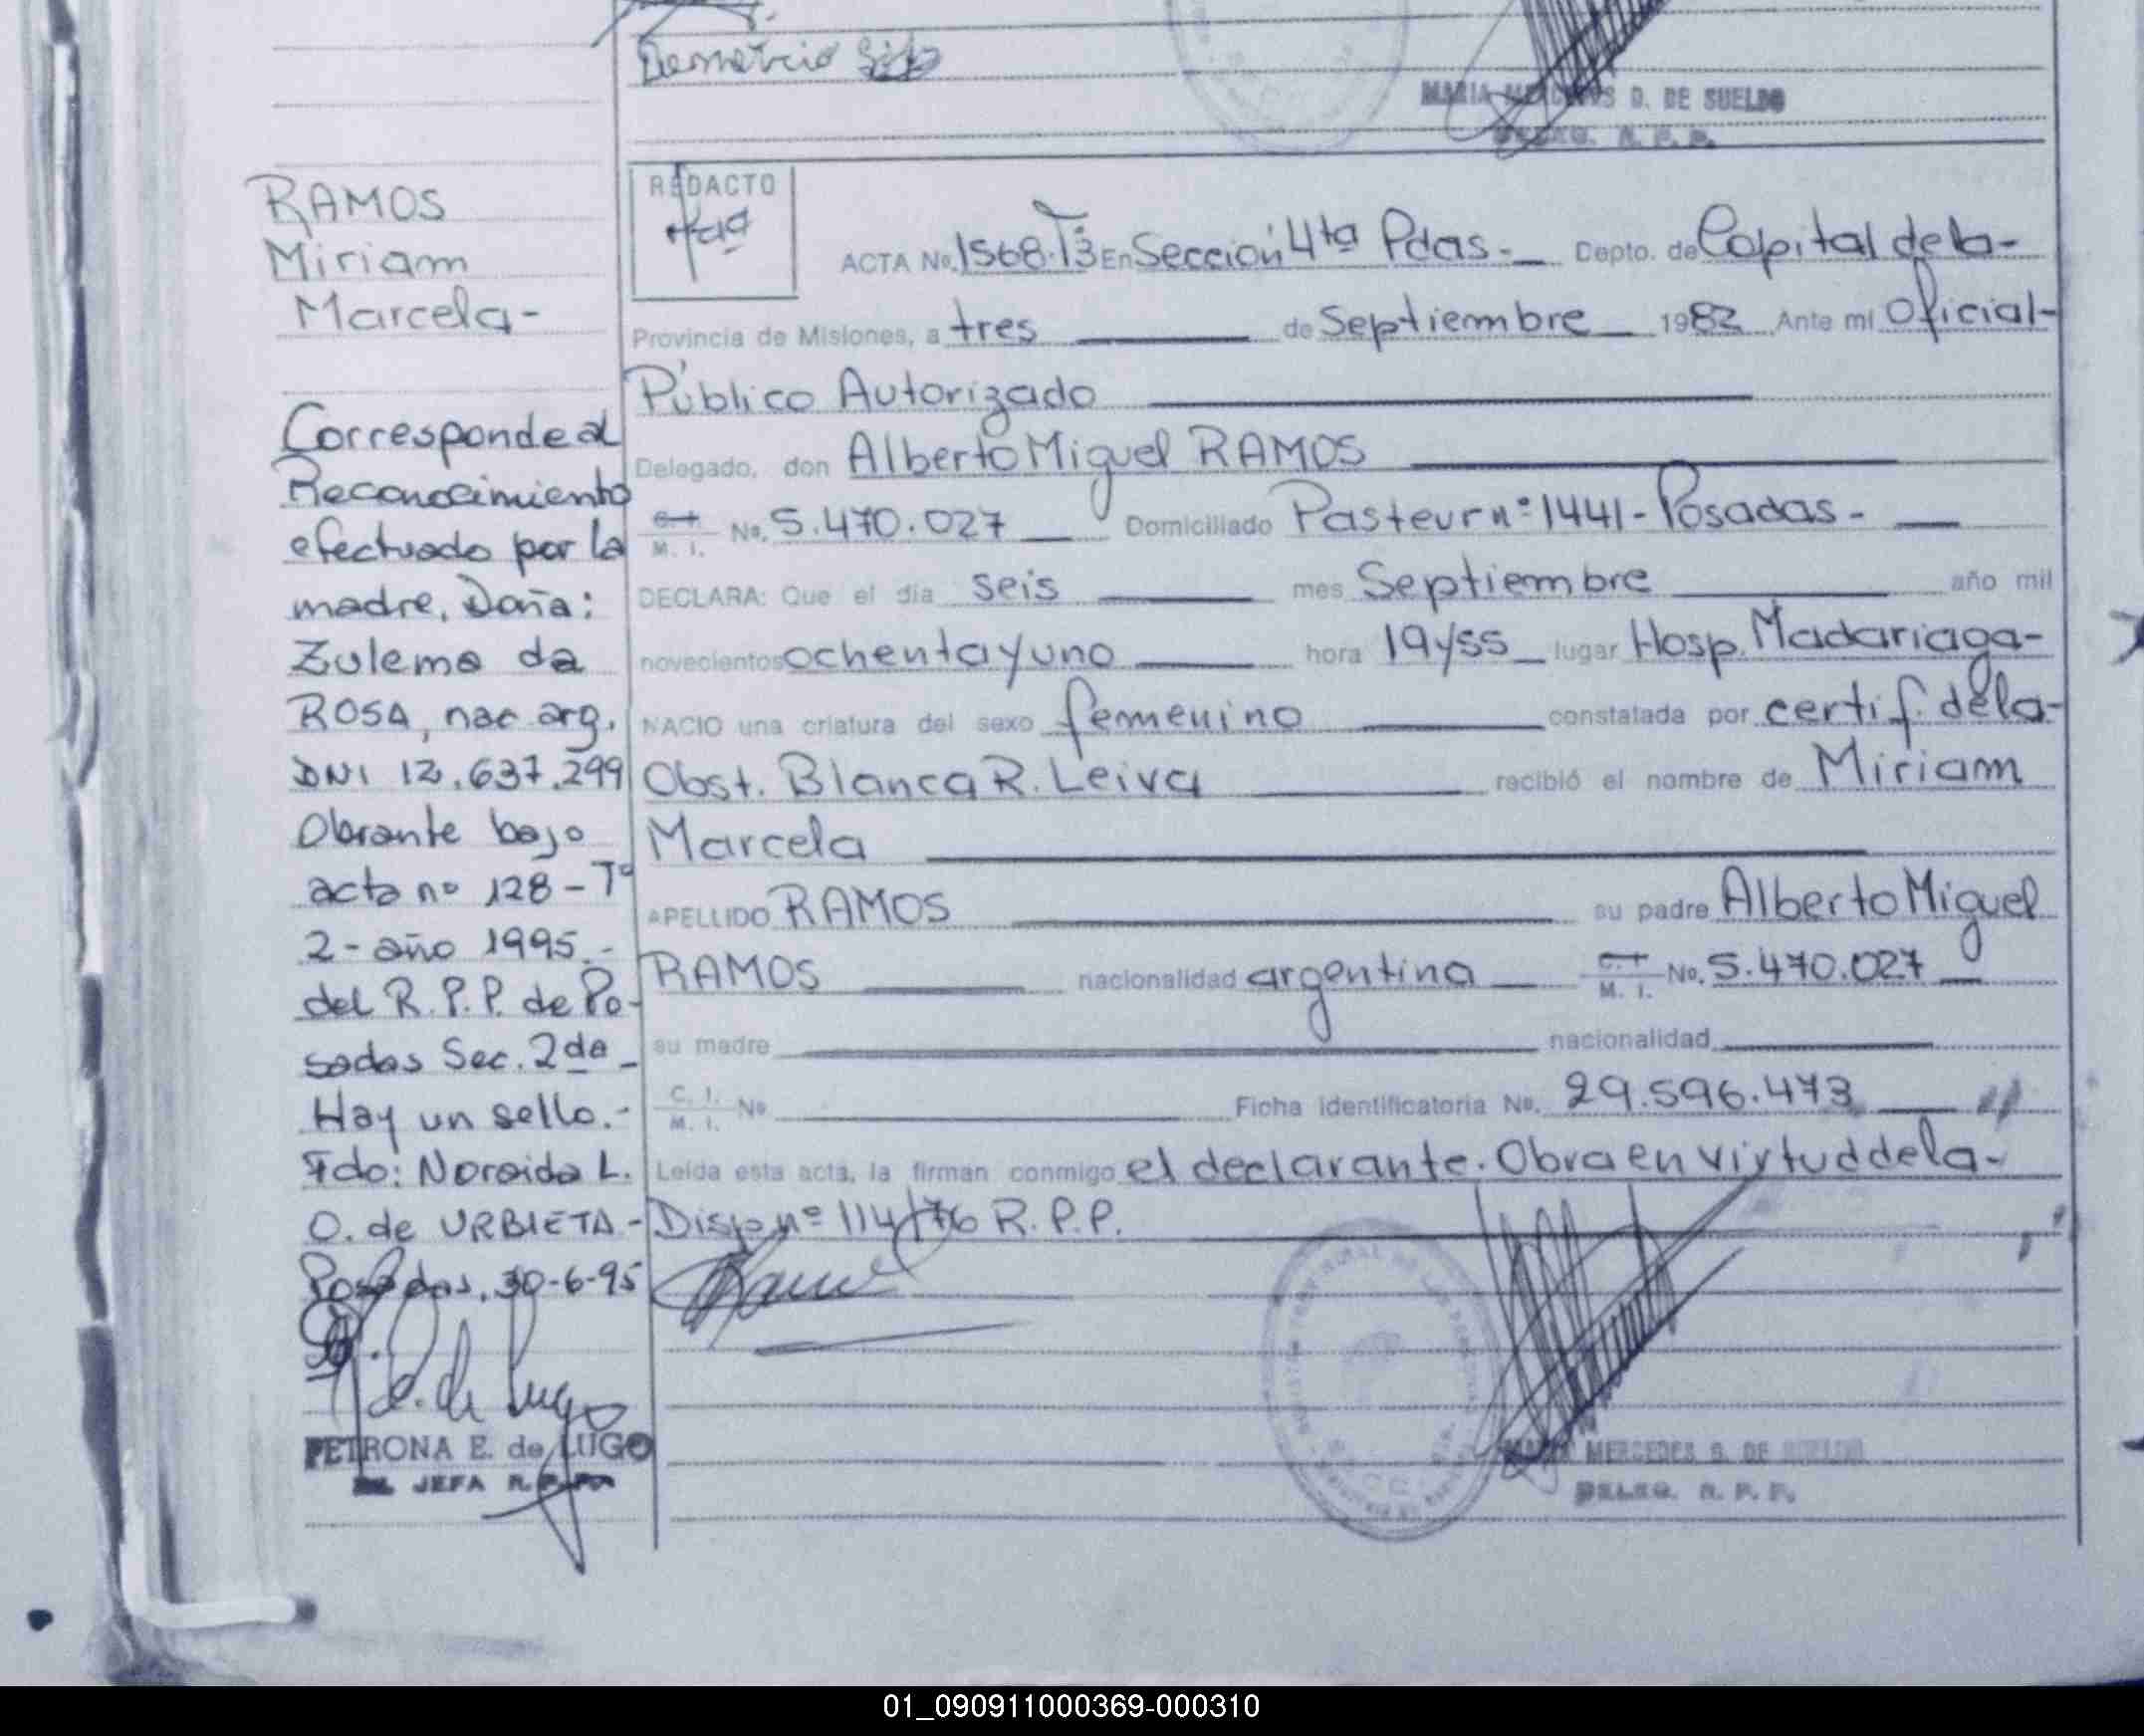 Demetrio
MARIA MERCEDES D. DE SUELDO
DELEG. R. P. P.
RAMOS
Miriam
Marcela-
Corresponde al
Reconocimiento
efectuado por la
madre, Doña:
Zulema da
ROSA, nac arg.
DNI 12.637.299
Obrante bajo
acta nº 128 - Tº
2 - año 1995.-
del R. P. P. de Po-
sadas Sec. 2da -
Hay un sello.-
Fdo: Noroida L.
O. de URBIETA -
Posadas, 30-6-95
P. E. de Lugo
PETRONA E. de LUGO
JEFA R. P. P.
REDACTO
ACTA No. 1568. T3 En Sección 4ta Pdas.- Depto. de Capital de la-
Provincia de Misiones, a tres de Septiembre 1982 Ante mí Oficial-
Público Autorizado
Delegado, don Alberto Miguel RAMOS
C. I. M. I. No. 5.470.027 Domiciliado Pasteur nº 1441 - Posadas -
DECLARA: Que el día seis mes Septiembre año mil
novecientos ochenta y uno hora 19y55 lugar Hosp. Madariaga-
NACIO una criatura del sexo femenino constatada por certif. de la-
Obst. Blanca R. Leiva recibió el nombre de Miriam
Marcela
APELLIDO RAMOS su padre Alberto Miguel
RAMOS nacionalidad argentina C. I. M. I. No. 5.470.027
su madre nacionalidad
C. I. M. I. No Ficha identificatoria No. 29.596.473
Leída esta acta, la firman conmigo el declarante. Obra en virtud de la-
Disp. nº 114/76 R. P. P.
MARIA MERCEDES D. DE SUELDO
DELEG. R. P. P.
01_090911000369-000310